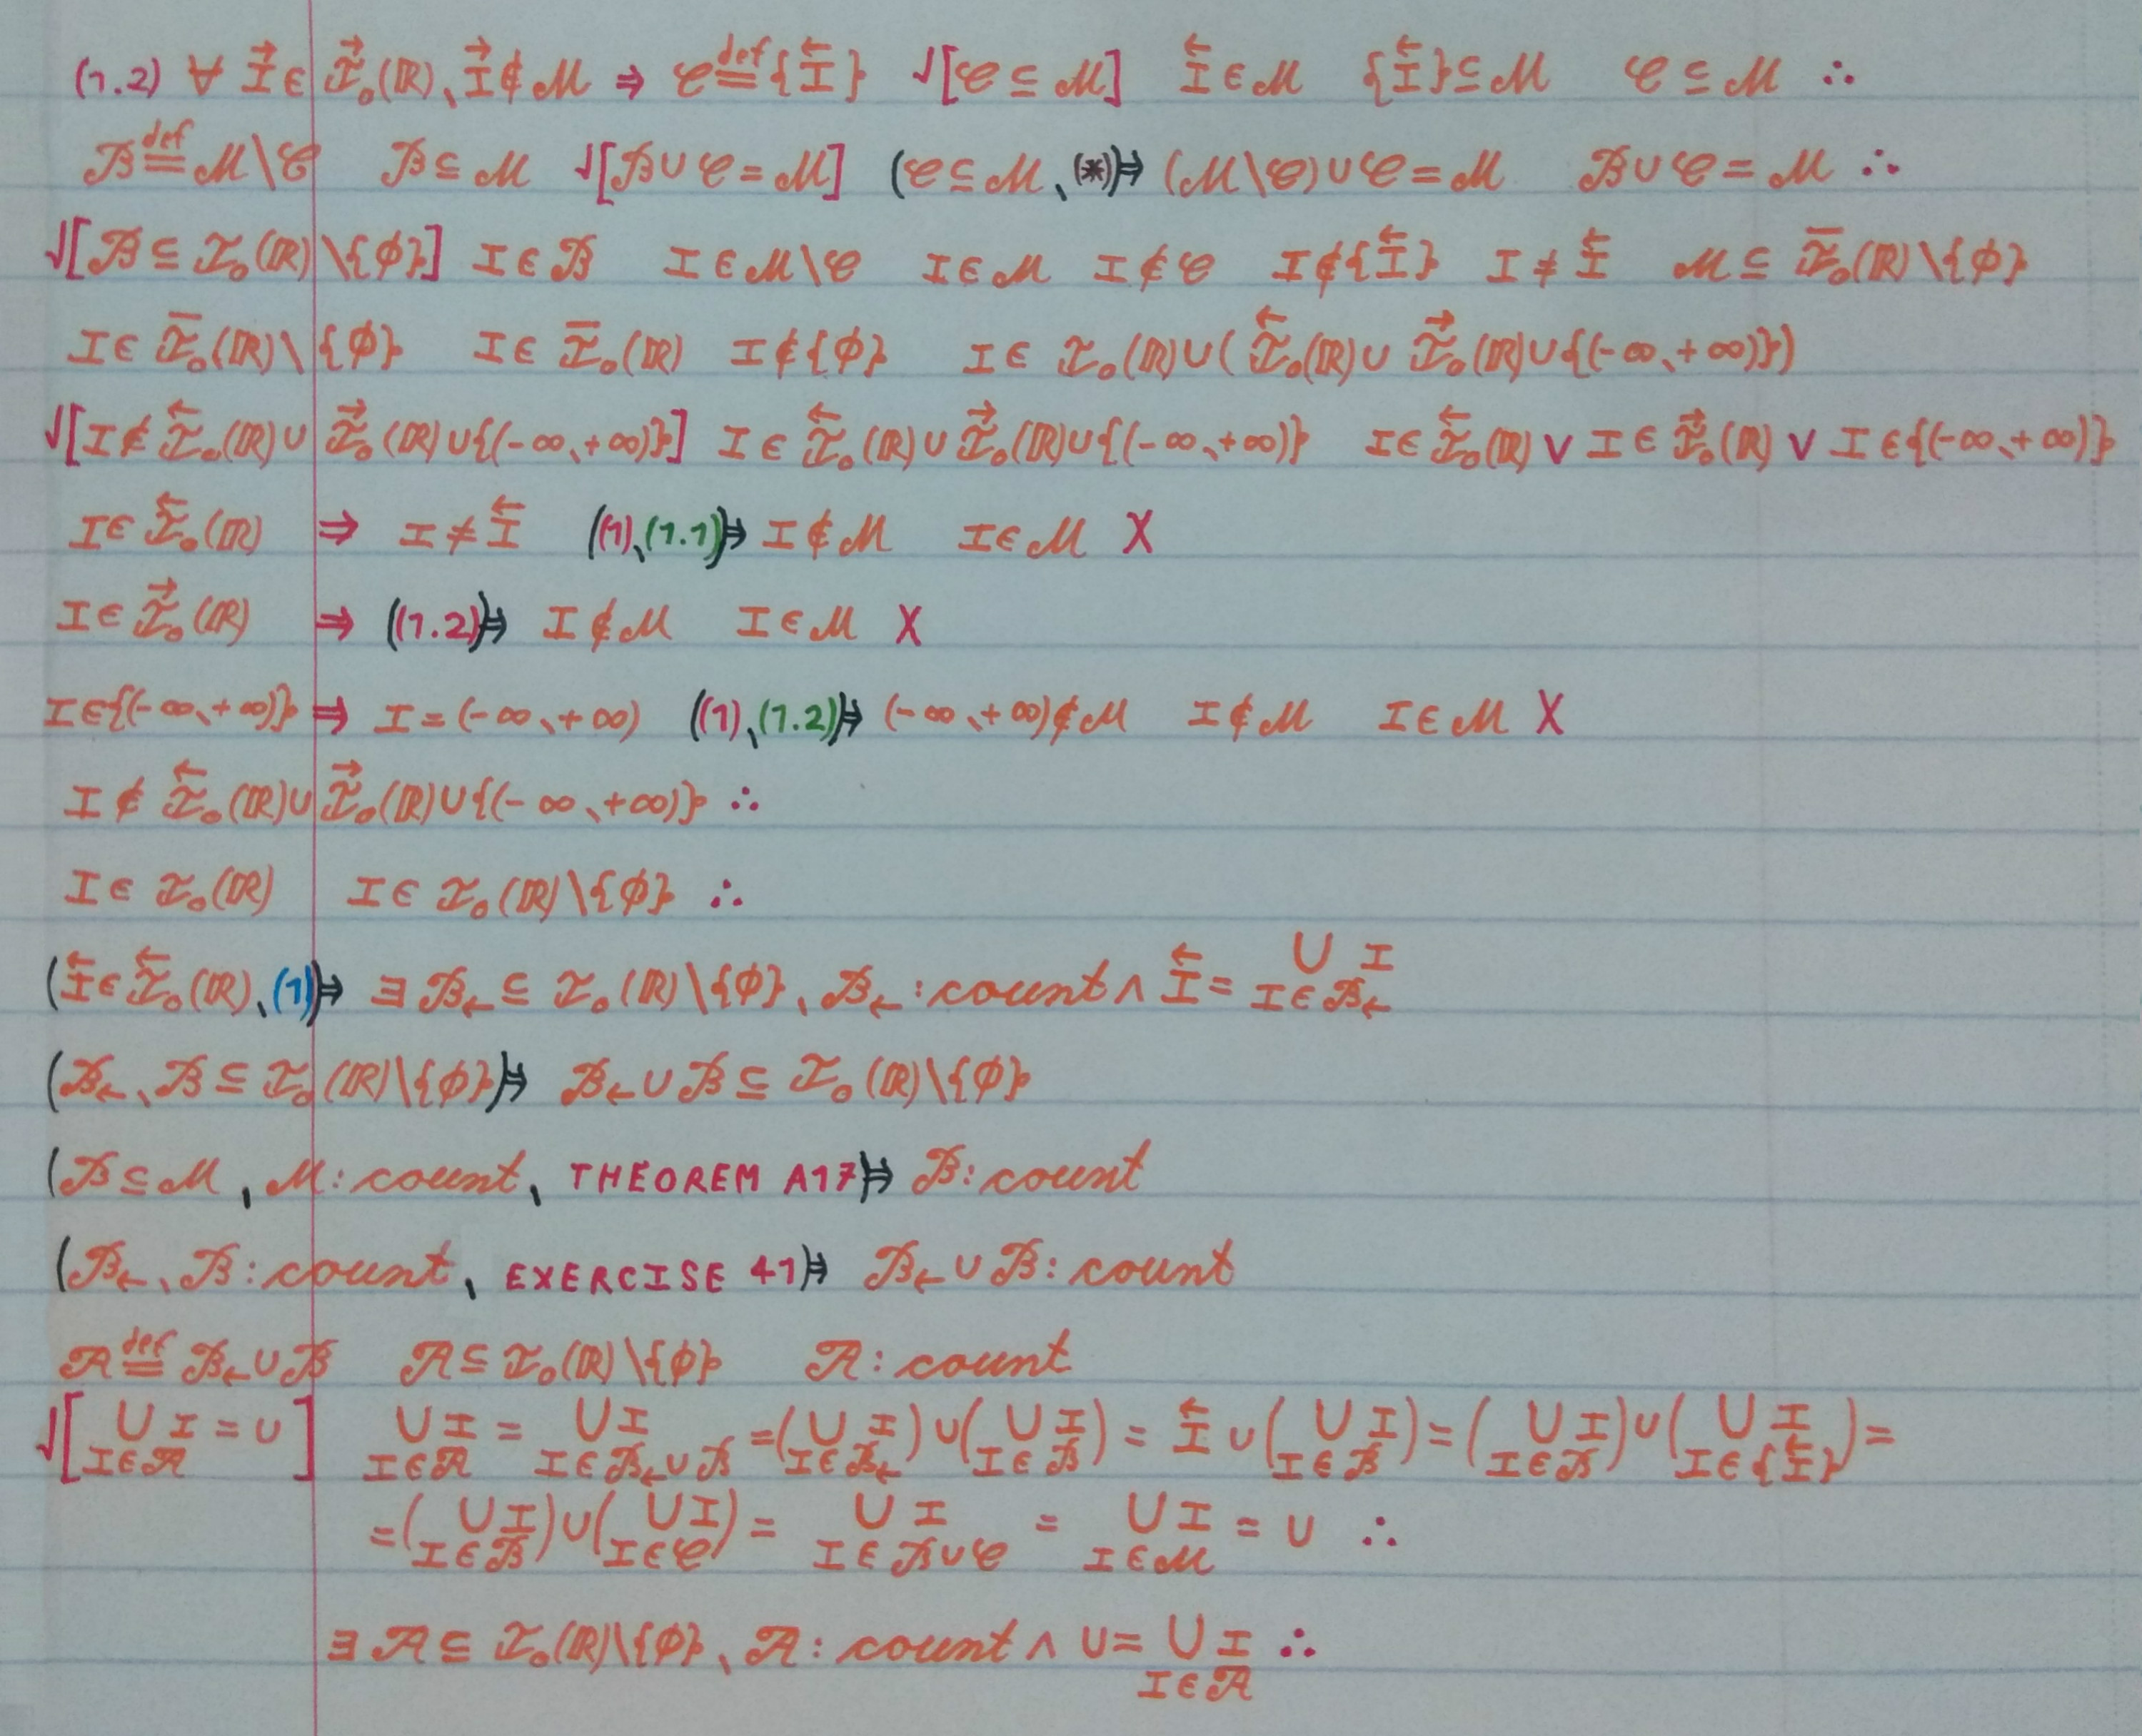 (1.2) ∀ I⃗ ∈ ℐ⃗₀(ℝ), I⃗ ∉ ℳ ⇒ 𝒞 def= {I⃖} √[𝒞 ⊆ ℳ] I⃖ ∈ ℳ {I⃖} ⊆ ℳ 𝒞 ⊆ ℳ ∴
ℬ def= ℳ\𝒞 ℬ ⊆ ℳ √[ℬ ∪ 𝒞 = ℳ] (𝒞 ⊆ ℳ, (*)) ⇒ (ℳ\𝒞) ∪ 𝒞 = ℳ ℬ ∪ 𝒞 = ℳ ∴
√[ℬ ⊆ ℐ₀(ℝ)\{∅}] I ∈ ℬ I ∈ ℳ\𝒞 I ∈ ℳ I ∉ 𝒞 I ∉ {I⃖} I ≠ I⃖ ℳ ⊆ ℐ̅₀(ℝ)\{∅}
I ∈ ℐ̅₀(ℝ)\{∅} I ∈ ℐ̅₀(ℝ) I ∉ {∅} I ∈ ℐ₀(ℝ) ∪ (ℐ⃖₀(ℝ) ∪ ℐ⃗₀(ℝ) ∪ {(-∞, +∞)})
√[I ∉ ℐ⃖₀(ℝ) ∪ ℐ⃗₀(ℝ) ∪ {(-∞, +∞)}] I ∈ ℐ⃖₀(ℝ) ∪ ℐ⃗₀(ℝ) ∪ {(-∞, +∞)} I ∈ ℐ⃖₀(ℝ) ∨ I ∈ ℐ⃗₀(ℝ) ∨ I ∈ {(-∞, +∞)}
I ∈ ℐ⃖₀(ℝ) ⇒ I ≠ I⃖ ((1), (1.1)) ⇒ I ∉ ℳ I ∈ ℳ X
I ∈ ℐ⃗₀(ℝ) ⇒ ((1.2)) ⇒ I ∉ ℳ I ∈ ℳ X
I ∈ {(-∞, +∞)} ⇒ I = (-∞, +∞) ((1), (1.2)) ⇒ (-∞, +∞) ∉ ℳ I ∉ ℳ I ∈ ℳ X
I ∉ ℐ⃖₀(ℝ) ∪ ℐ⃗₀(ℝ) ∪ {(-∞, +∞)} ∴
I ∈ ℐ₀(ℝ) I ∈ ℐ₀(ℝ)\{∅} ∴
(I⃖ ∈ ℐ⃖₀(ℝ), (1)) ⇒ ∃ ℬ← ⊆ ℐ₀(ℝ)\{∅}, ℬ← : count ∧ I⃖ = ⋃_{I ∈ ℬ←} I
(ℬ←, ℬ ⊆ ℐ₀(ℝ)\{∅}) ⇒ ℬ← ∪ ℬ ⊆ ℐ₀(ℝ)\{∅}
(ℬ ⊆ ℳ, ℳ : count, THEOREM A17) ⇒ ℬ : count
(ℬ←, ℬ : count, EXERCISE 41) ⇒ ℬ← ∪ ℬ : count
𝒜 def= ℬ← ∪ ℬ 𝒜 ⊆ ℐ₀(ℝ)\{∅} 𝒜 : count
√[⋃_{I ∈ 𝒜} I = U] ⋃_{I ∈ 𝒜} I = ⋃_{I ∈ ℬ← ∪ ℬ} I = (⋃_{I ∈ ℬ←} I) ∪ (⋃_{I ∈ ℬ} I) = I⃖ ∪ (⋃_{I ∈ ℬ} I) = (⋃_{I ∈ ℬ} I) ∪ (⋃_{I ∈ {I⃖}} I) =
= (⋃_{I ∈ ℬ} I) ∪ (⋃_{I ∈ 𝒞} I) = ⋃_{I ∈ ℬ ∪ 𝒞} I = ⋃_{I ∈ ℳ} I = U ∴
∃ 𝒜 ⊆ ℐ₀(ℝ)\{∅}, 𝒜 : count ∧ U = ⋃_{I ∈ 𝒜} I ∴